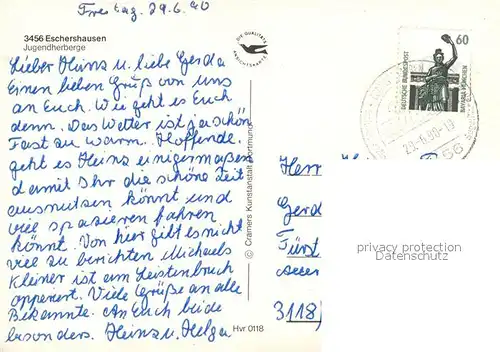 Freitag, 29.6.90
3456 Eschershausen
Jugendherberge
DIE QUALITÄTS
ANSICHTSKARTE
Lieber Heinz u. liebe Gerda
Einen lieben Gruß von uns
an Euch. Wie geht es Euch
denn. Das Wetter ist ja schön
Fast zu warm. Hoffende.
geht es Heinz einigermaßen
damit Ihr die schöne Zeit
ausnutzen könnt und
viel spazieren fahren
könnt. Von hier gibt es nicht
viel zu berichten Michaels
Kleiner ist am Leistenbruch
operiert. Viele Grüße an alle
Bekannte. An Euch beide
besonders. Heinz u. Helga
Hvr 0118
© Cramers Kunstanstalt Dortmund
60
DEUTSCHE BUNDESPOST
BAVARIA MÜNCHEN
29.6.90-19
Herr
Gerd
Fürst
3118
privacy protection
Datenschutz